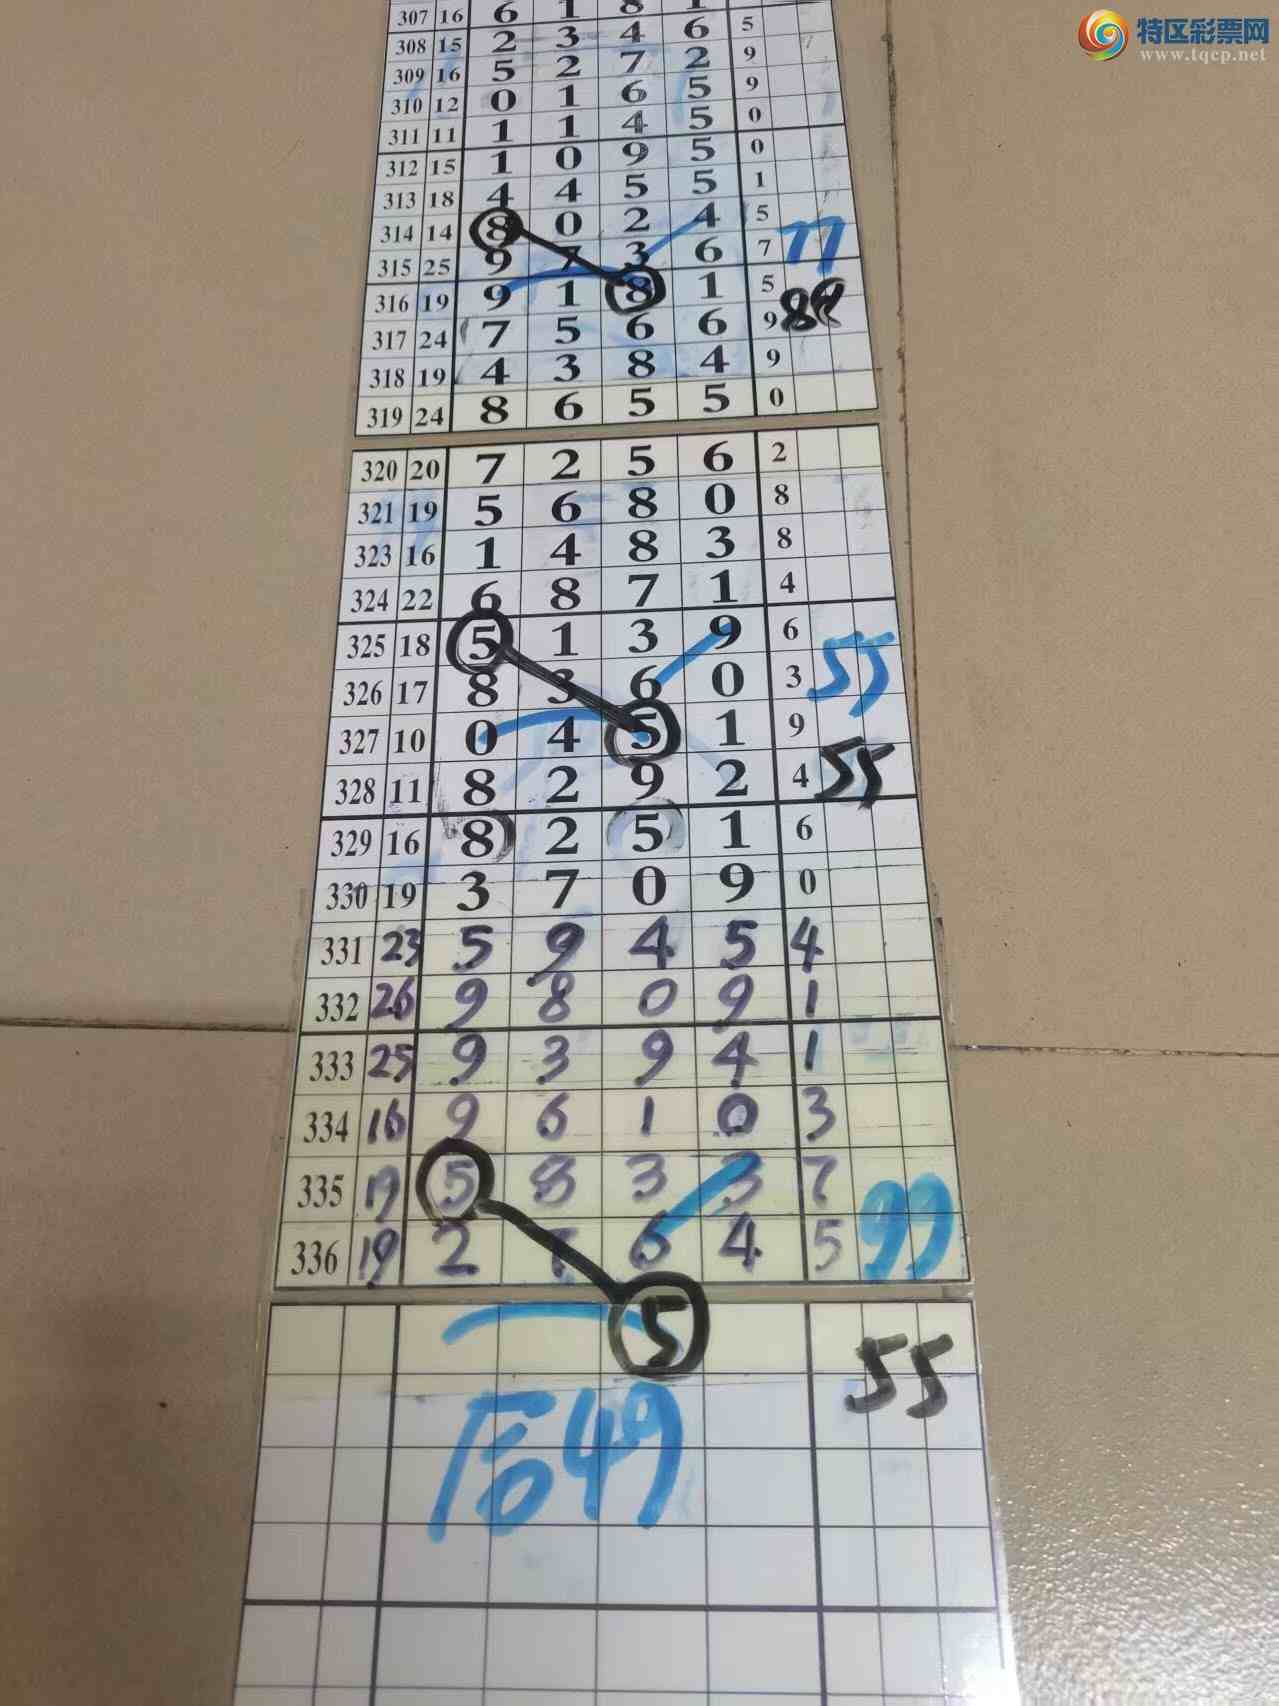 特区彩票网
www.tqcp.net
307 16 6 1 8 1
308 15 2 3 4 6 5
309 16 5 2 7 2 9
310 12 0 1 6 5 9
311 11 1 1 4 5 0
312 15 1 0 9 5 0
313 18 4 4 5 5 1
314 14 8 0 2 4 5
315 25 9 7 3 6 7 77
316 19 9 1 8 1 5
317 24 7 5 6 6 9
318 19 4 3 8 4 9
319 24 8 6 5 5 0
320 20 7 2 5 6 2
321 19 5 6 8 0 8
323 16 1 4 8 3 8
324 22 6 8 7 1 4
325 18 5 1 3 9 6
326 17 8 3 6 0 3 55
327 10 0 4 5 1 9
328 11 8 2 9 2 4 55
329 16 8 2 5 1 6
330 19 3 7 0 9 0
331 23 5 9 4 5 4
332 26 9 8 0 9 1
333 25 9 3 9 4 1
334 16 9 6 1 0 3
335 19 5 8 3 3 7
336 19 2 7 6 4 5 99
5 55
后49